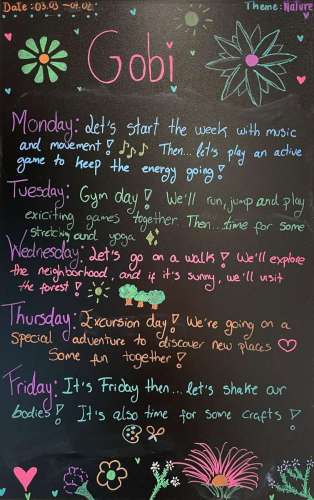 Date: 03.03 - 07.02
Theme: Nature
Gobi
Monday: Let's start the week with music
and movement! Then... let's play an active
game to keep the energy going!
Tuesday: Gym day! We'll run, jump and play
exciting games together. Then... time for some
stretching and yoga
Wednesday: Let's go on a walk! We'll explore
the neighborhood, and if it's sunny, we'll visit
the forest!
Thursday: Excursion day! We're going on a
special adventure to discover new places
Some fun together!
Friday: It's Friday then... let's shake our
bodies! It's also time for some crafts!